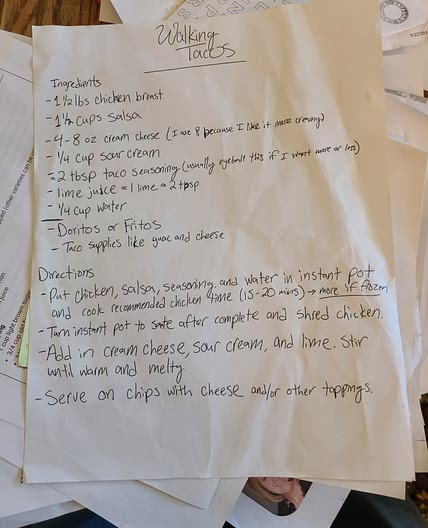 Walking
Tacos
Ingredients
- 1 1/2 lbs chicken breast
- 1 1/2 cups salsa
- 4-8 oz cream cheese (I use 8 because I like it more creamy)
- 1/4 cup sour cream
- 2 tbsp taco seasoning (usually eyeball this if I want more or less)
- lime juice = 1 lime = 2 tbsp
- 1/4 cup water
- Doritos or Fritos
- Taco supplies like guac and cheese
Directions
- Put chicken, salsa, seasoning, and water in instant pot
and cook recommended chicken time (15-20 mins) → more if frozen
- Turn instant pot to sauté after complete and shred chicken.
- Add in cream cheese, sour cream, and lime. Stir
until warm and melty.
- Serve on chips with cheese and/or other toppings.